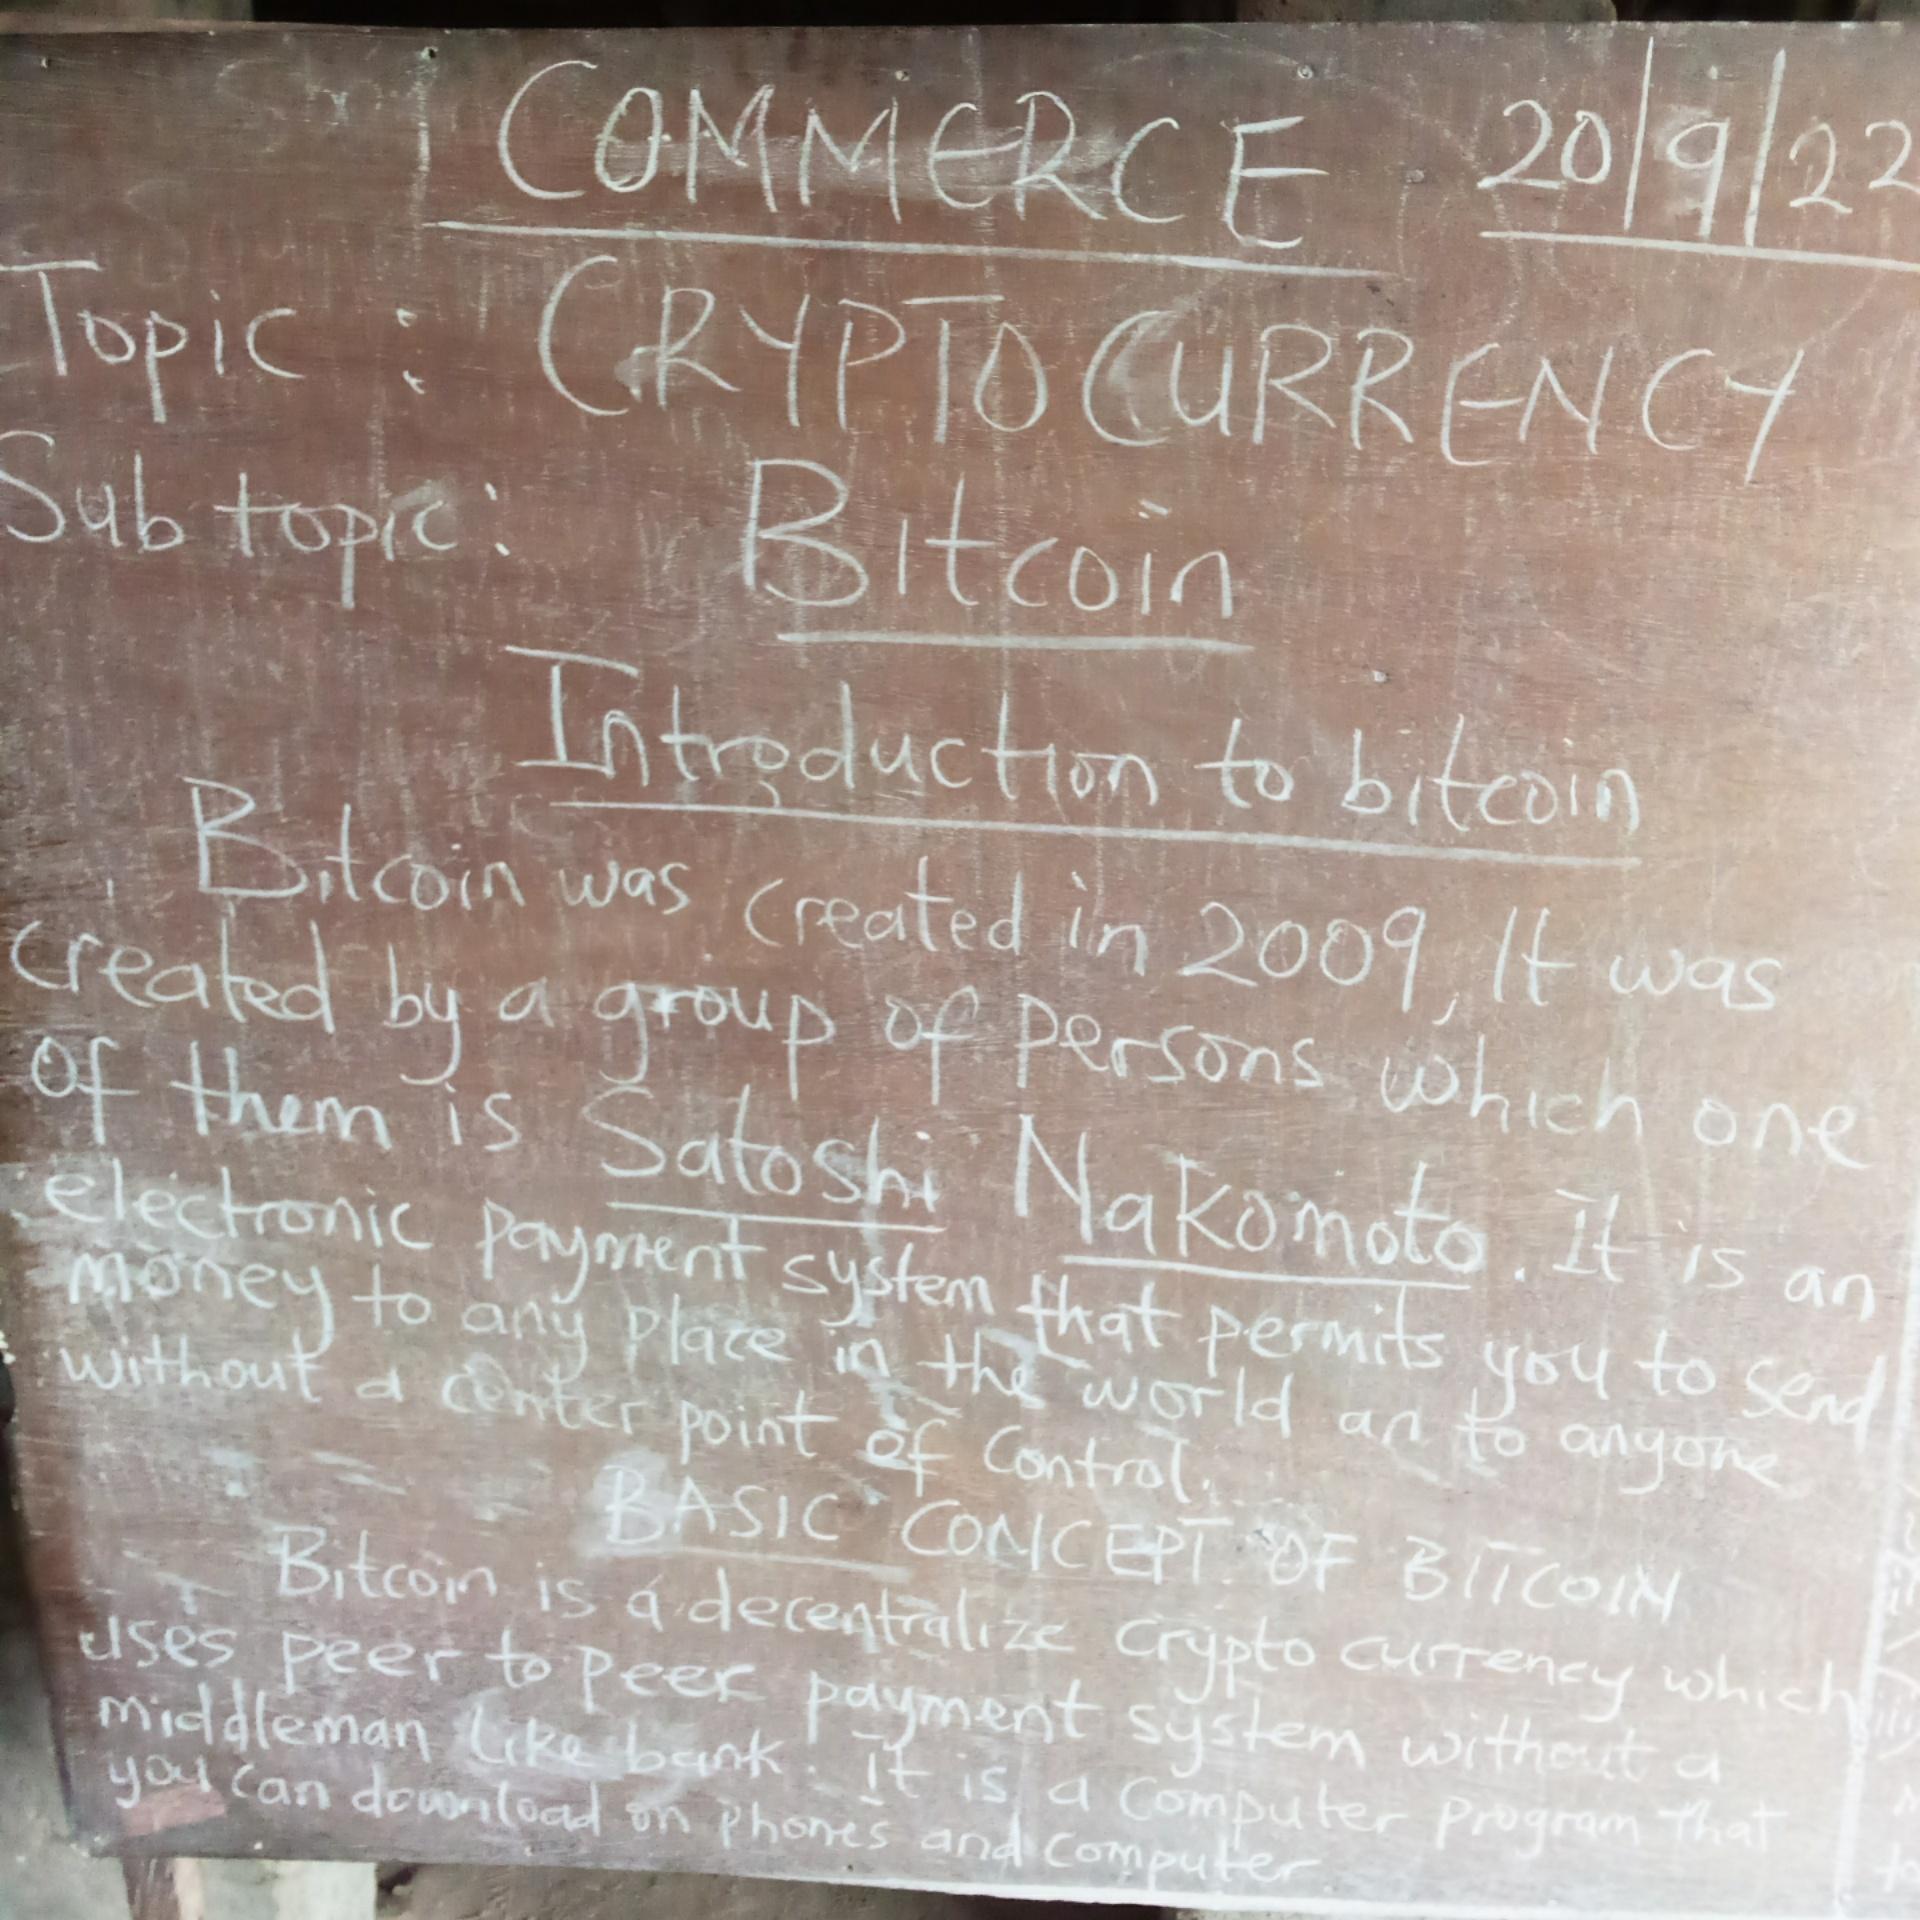 COMMERCE 20/9/22
Topic : CRYPTOCURRENCY
Sub topic: Bitcoin
Introduction to bitcoin
Bitcoin was created in 2009, It was
created by a group of persons which one
of them is Satoshi Nakomoto. It is an
electronic payment system that permits you to send
money to any place in the world an to anyone
without a center point of control.
BASIC CONCEPT OF BITCOIN
Bitcoin is a decentralize crypto currency which
uses peer to peer payment system without a
middleman like bank. It is a computer program that
you can download on phones and computer